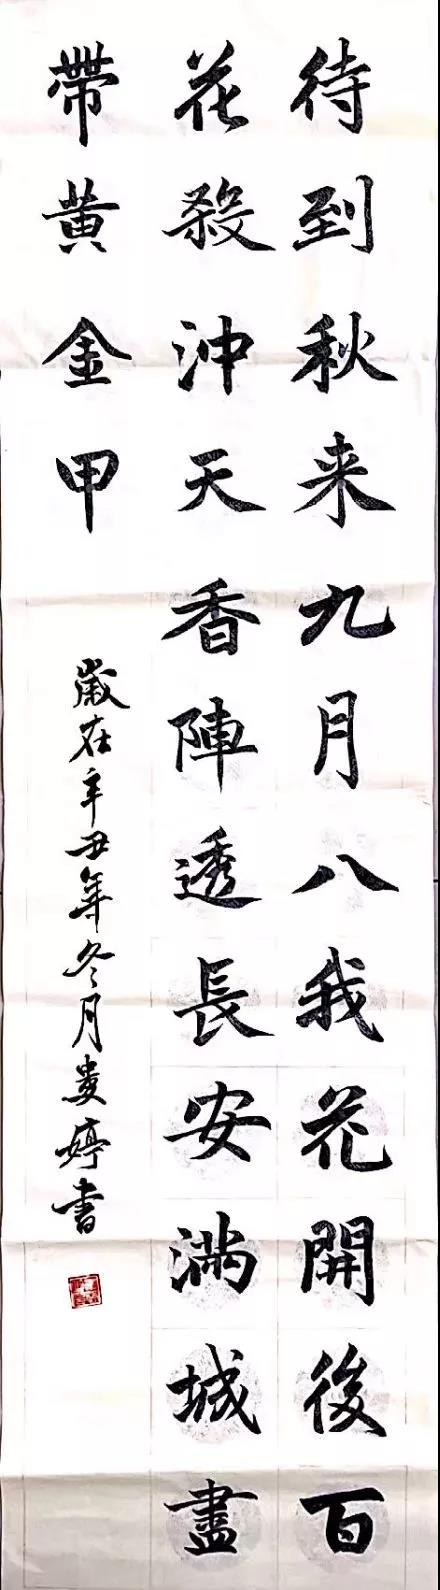 待到秋来九月八我花開後百
花殺沖天香陣透長安滿城盡
帶黄金甲
歲在辛丑年冬月婁婷書